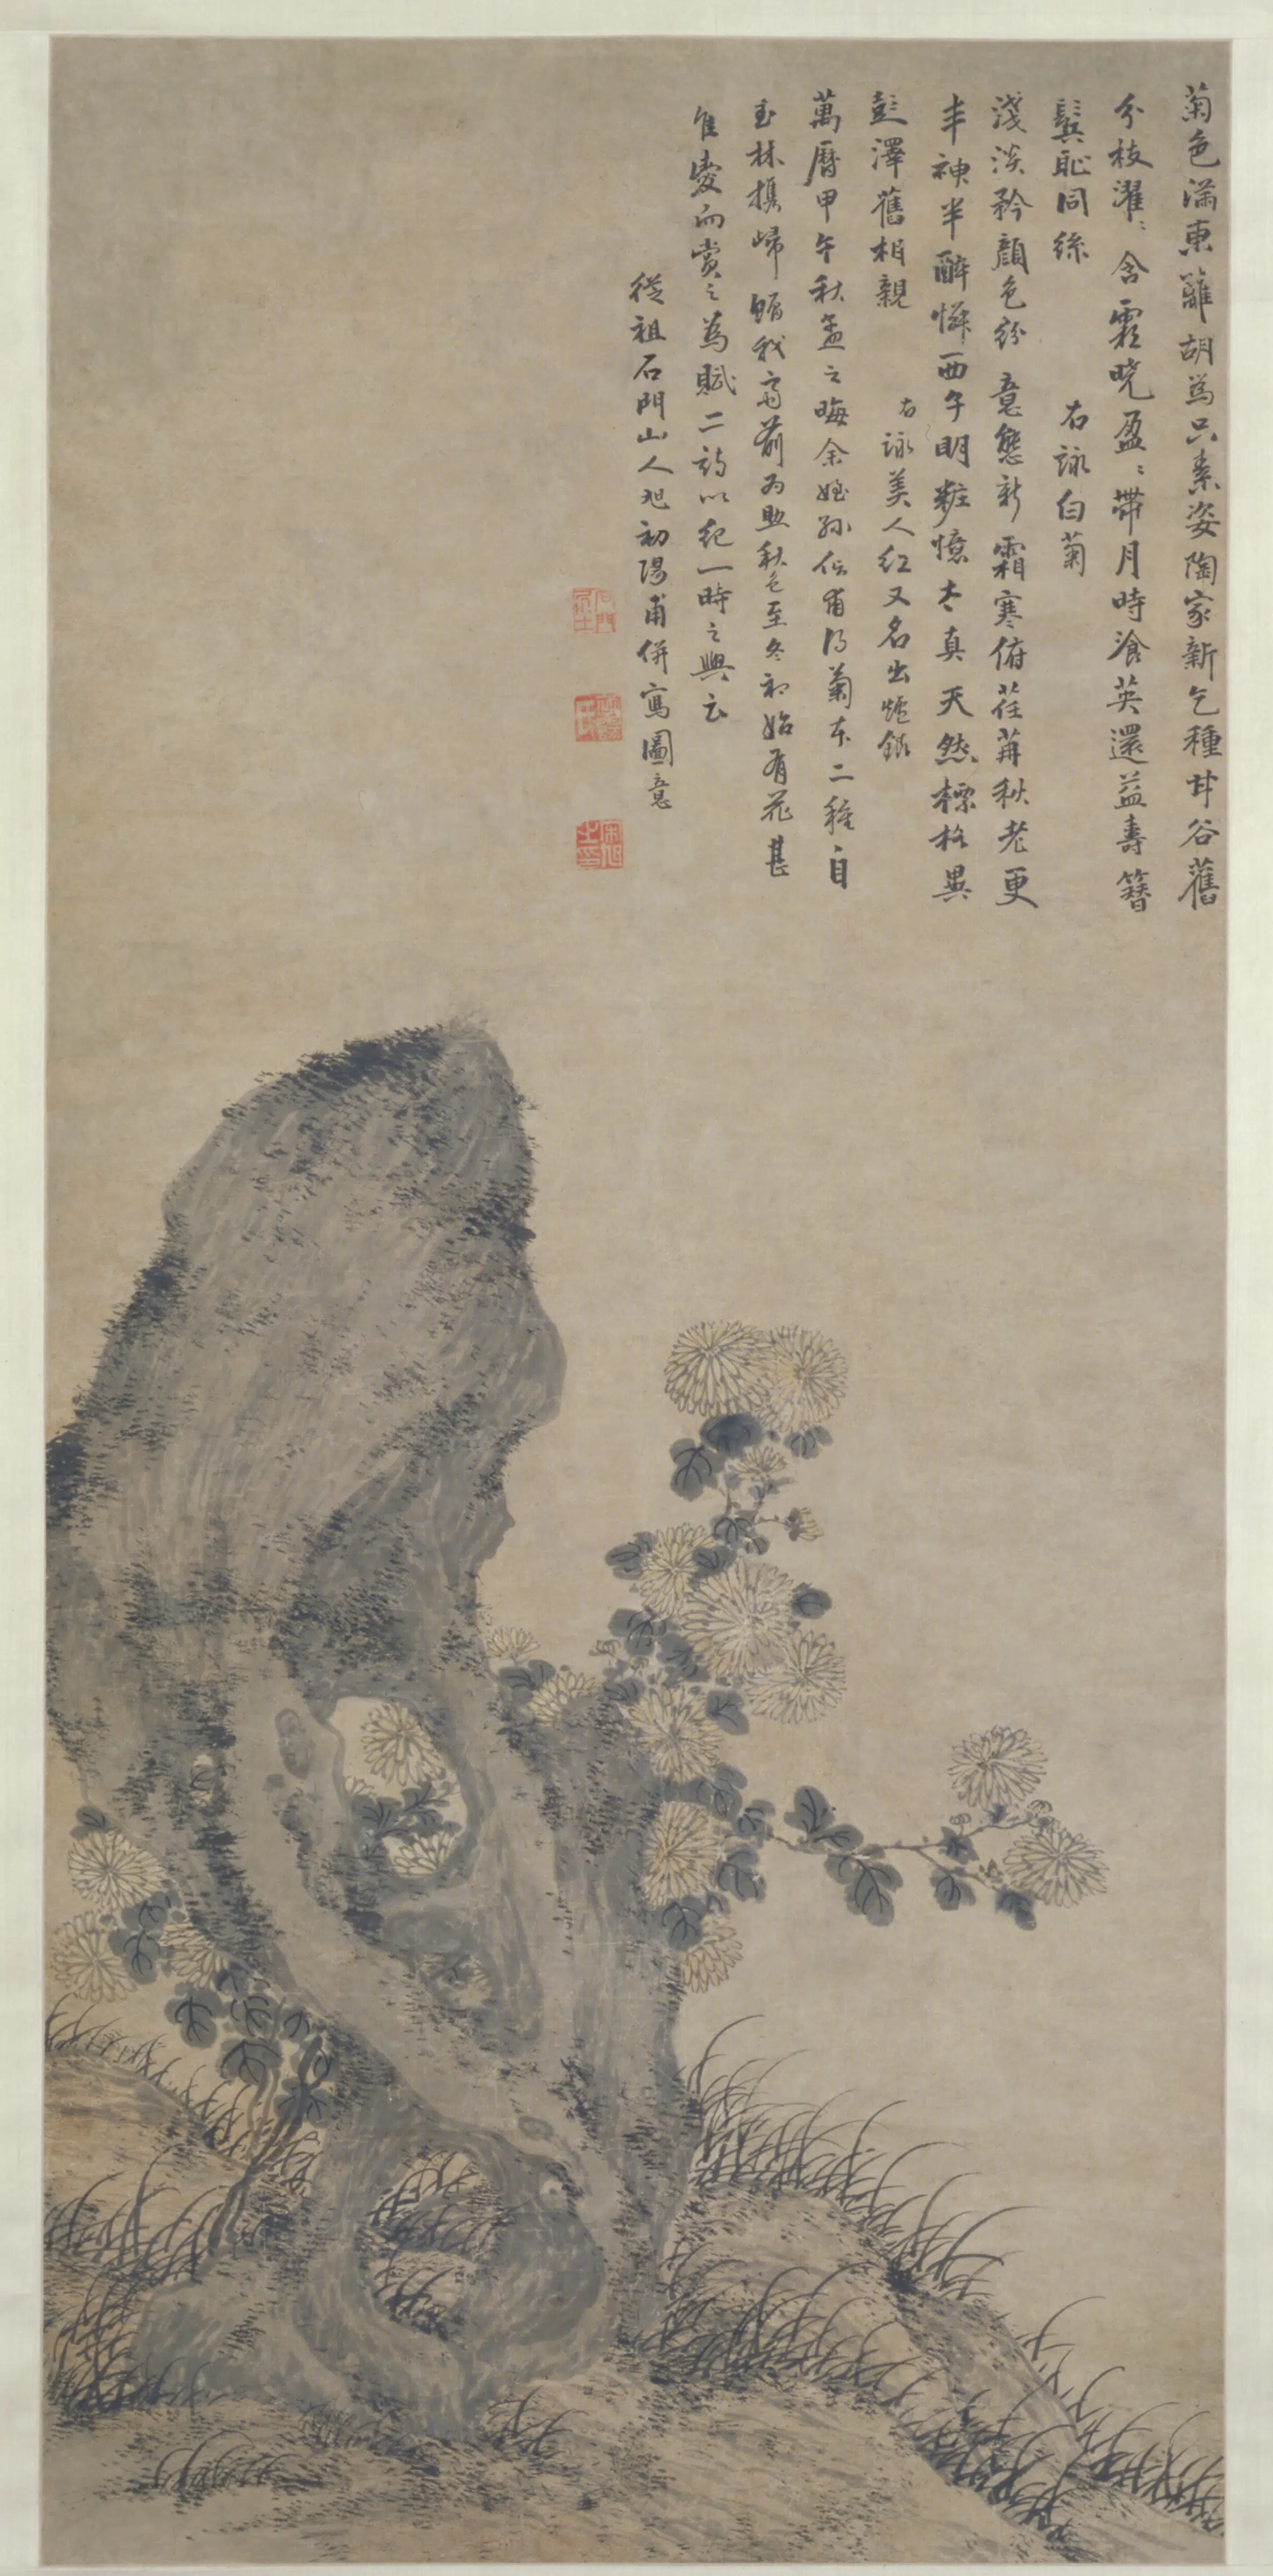 菊色滿東籬胡爲只素姿陶家新乞種甘谷舊
分枝濯〻含霜曉盈〻帶月時飡英還益壽簪
鬂恥同絲　右詠白菊
淺淡矜顏色紛　意態新霜寒俯荏苒秋老更
丰神半醉憐西子明粧憶太真天然標格異
彭澤舊相親　右詠美人紅又名出爐銀
萬曆甲午秋孟之晦余姪孫　甫得菊本二種自
玉林携歸　我齋前為助秋色至冬初始有花甚
隹愛而賞之為賦二詩以紀一時之興云
從祖石門山人　初暘甫併寫圖意
石門
初暘
宋旭之印